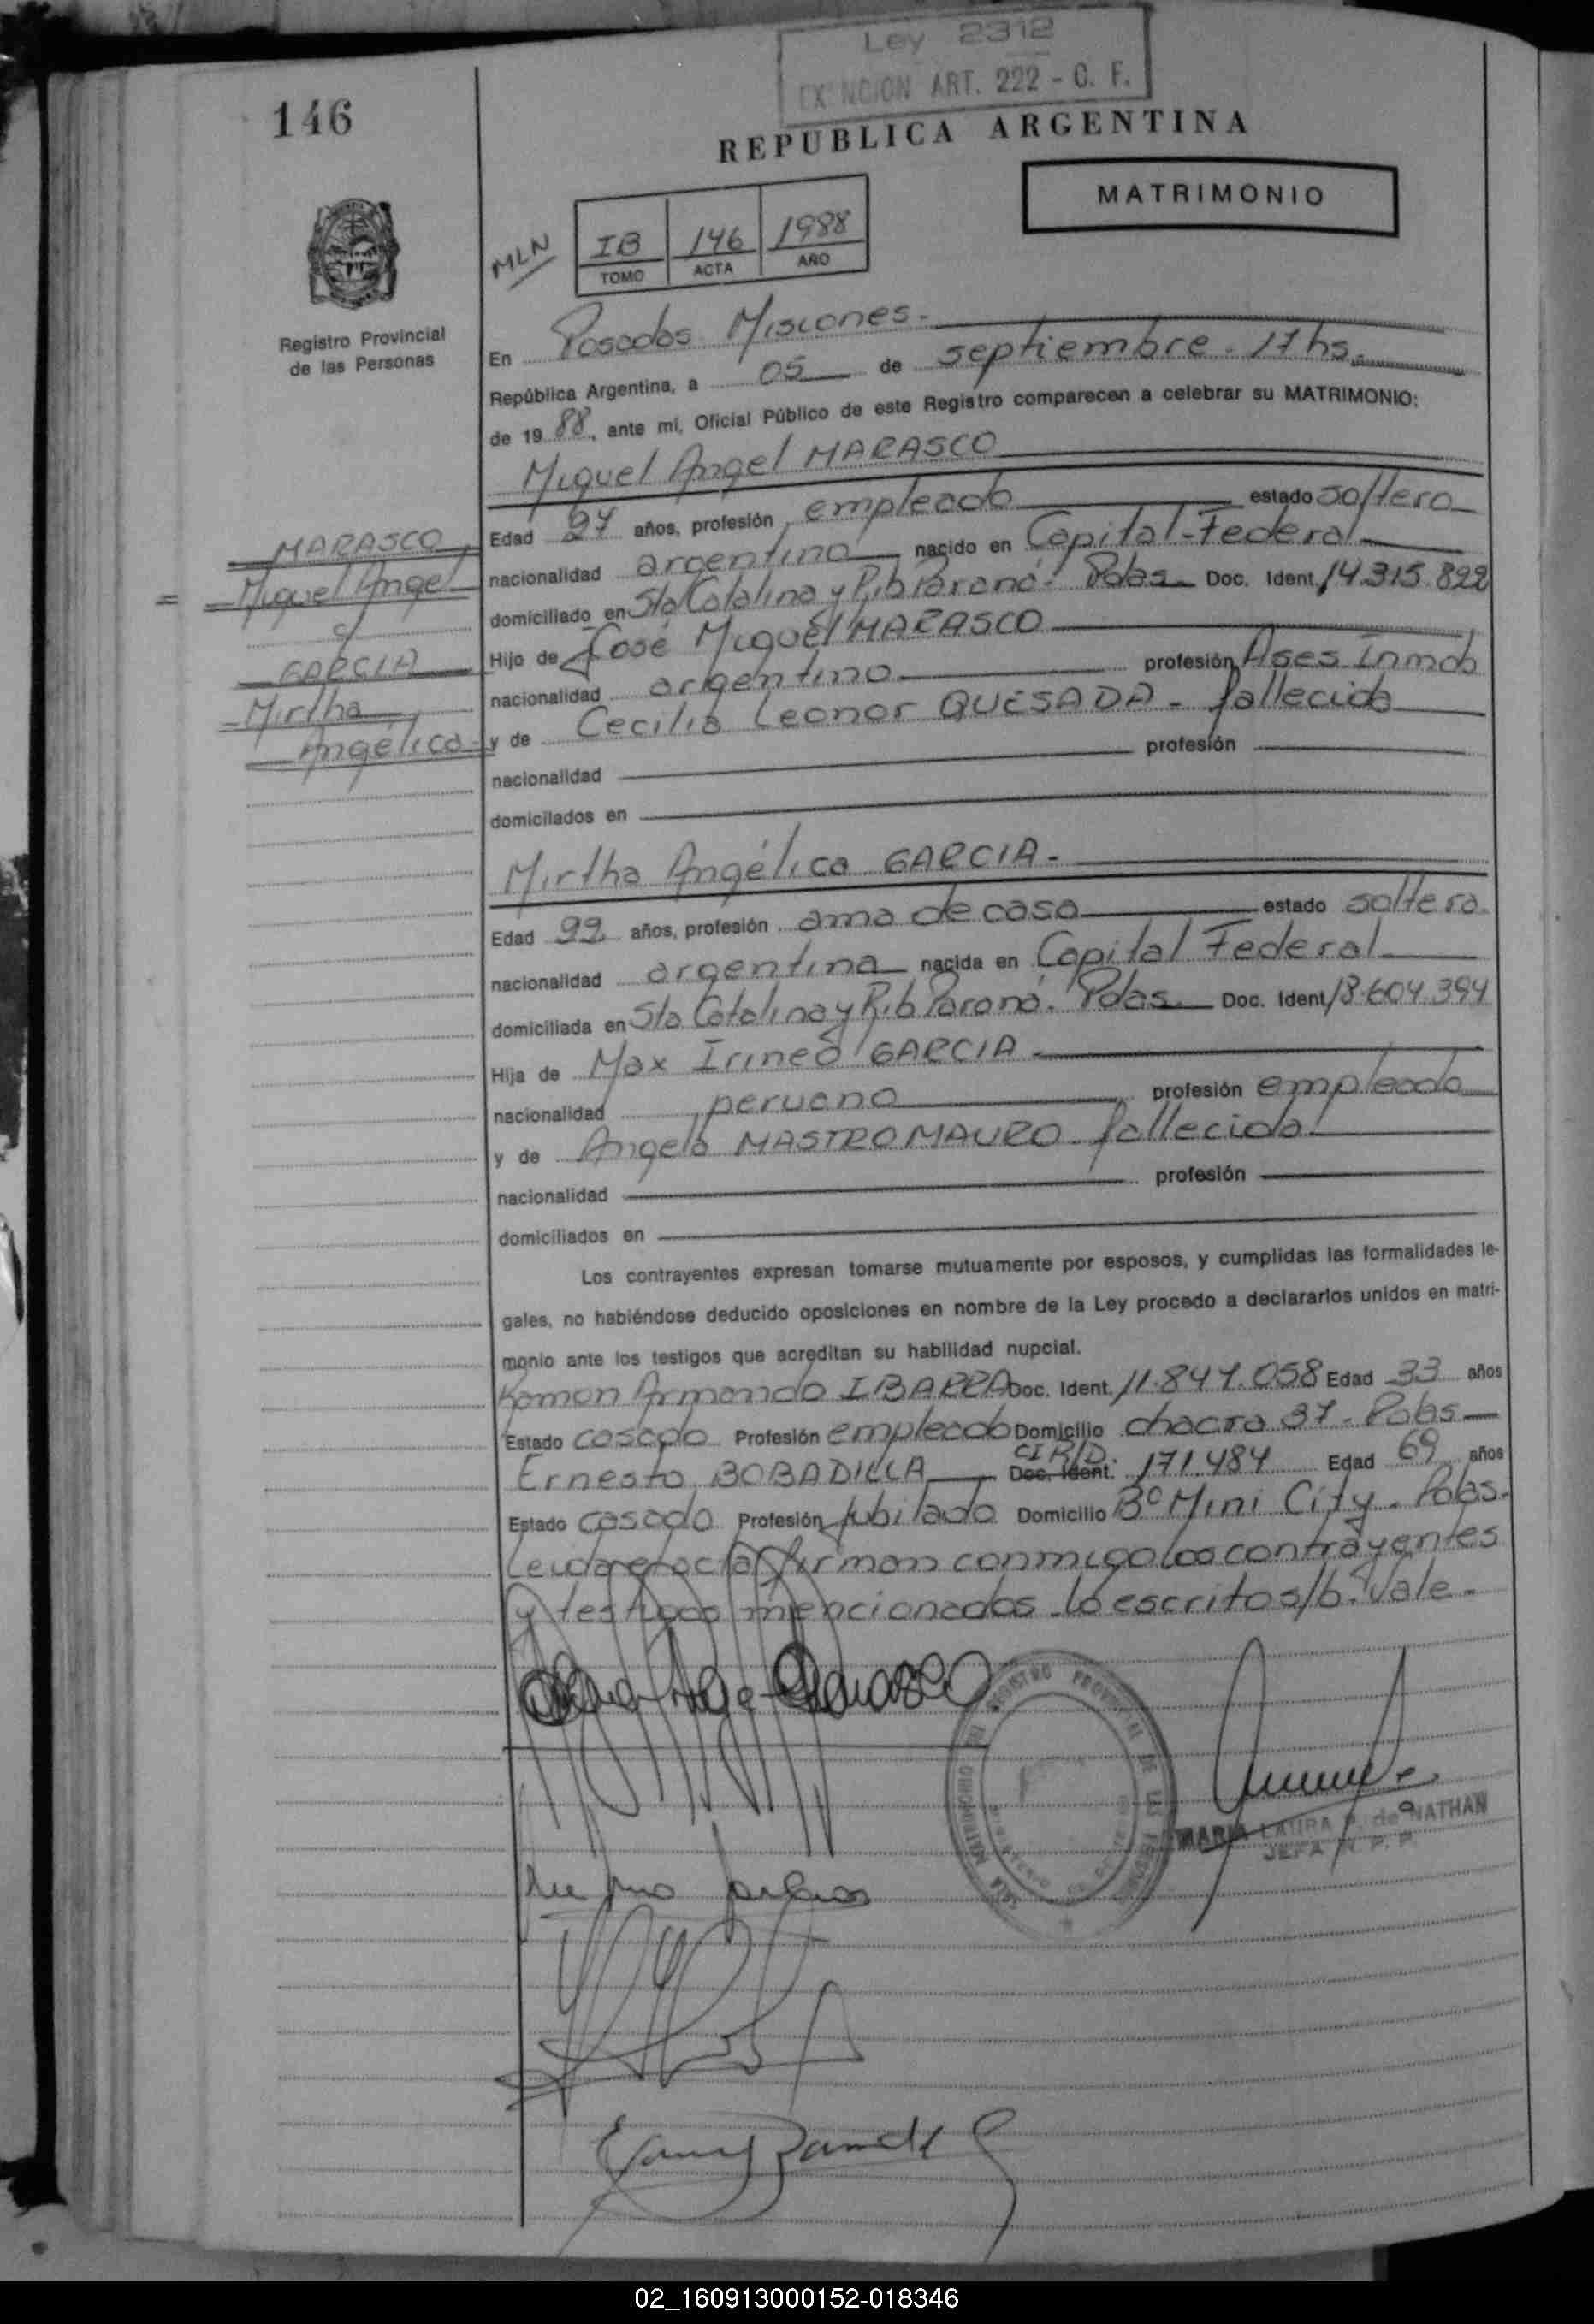 Ley 2312
EXENCION ART. 222 - C. F.
146
REPUBLICA ARGENTINA
MATRIMONIO
MLN
IB 146 1988
TOMO ACTA AÑO
Registro Provincial
de las Personas
En Posadas Misiones.-
República Argentina, a 05 de septiembre - 17 hs.
de 1988, ante mí, Oficial Público de este Registro comparecen a celebrar su MATRIMONIO:
Miguel Angel MARASCO
Edad 27 años, profesión empleado estado soltero
nacionalidad argentino nacido en Capital-Federal
domiciliado en Sta Catalina y Rib Paraná. Pdas Doc. Ident. 14.315.822
Hijo de José Miguel MARASCO
nacionalidad argentino profesión Ases Inmob
y de Cecilia Leonor QUESADA - fallecida
nacionalidad profesión
domicilados en
MARASCO,
Miguel Angel
c/
GARCIA
Mirtha
Angélica-
Mirtha Angélica GARCIA-
Edad 22 años, profesión ama de casa estado soltera
nacionalidad argentina nacida en Capital Federal
domiciliada en Sta Catalina y Rib Paraná. Pdas. Doc. Ident. 18.604.394
Hija de Max Irineo GARCIA
nacionalidad peruano profesión empleado
y de Angela MASTROMAURO - fallecida
nacionalidad profesión
domiciliados en
Los contrayentes expresan tomarse mutuamente por esposos, y cumplidas las formalidades le-
gales, no habiéndose deducido oposiciones en nombre de la Ley procedo a declararlos unidos en matri-
monio ante los testigos que acreditan su habilidad nupcial.
Ramon Armando IBARRA Doc. Ident. 11.847.058 Edad 33 años
Estado casado Profesión empleado Domicilio chacra 37 - Pdas
CIRD.
Ernesto BOBADILLA Doc. Ident. 171.484 Edad 69 años
Estado casado Profesión jubilado Domicilio B° Mini City - Pdas.
Leida el acta firman conmigo los contrayentes
y testigos mencionados - lo escrito s/b. Vale-
REGISTRO PROVINCIAL DE LAS PERSONAS
MARIA LAURA P. de NATHAN
JEFA R. P. P.
02_160913000152-018346